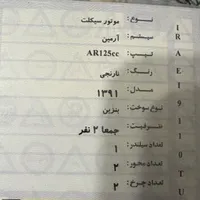 نوع: موتور سیکلت
سیستم: آرمین
تیپ: AR125cc
رنگ: نارنجی
مدل: ۱۳۹۱
نوع سوخت: بنزین
ظرفیت: جمعا ۲ نفر
تعداد سیلندر: ۱
تعداد محور: ۲
تعداد چرخ: ۲